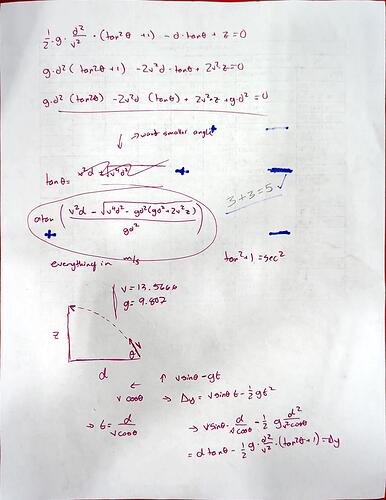 ½·g·d²/v²·(tan²θ +1) - d·tanθ + z = 0
g·d²(tan²θ +1) - 2v²d·tanθ + 2v²z = 0
g·d²(tan²θ) - 2v²d (tanθ) + 2v²z + gd² = 0
↓ → want smaller angle
tanθ =
3+3=5 ✓
atan ( (v²d - √(v⁴d² - gd²(gd²+2v²z))) / gd² )
everything in m/s
tan²+1 = sec²
v = 13.5666
g = 9.807
z
θ
d
← vcosθ
↑ vsinθ - gt
→ Δy = vsinθt - ½gt²
→ t = d/vcosθ
→ vsinθ·d/vcosθ - ½ g d²/v²cosθ
= d tanθ - ½·g·d²/v²·(tan²θ+1) = Δy